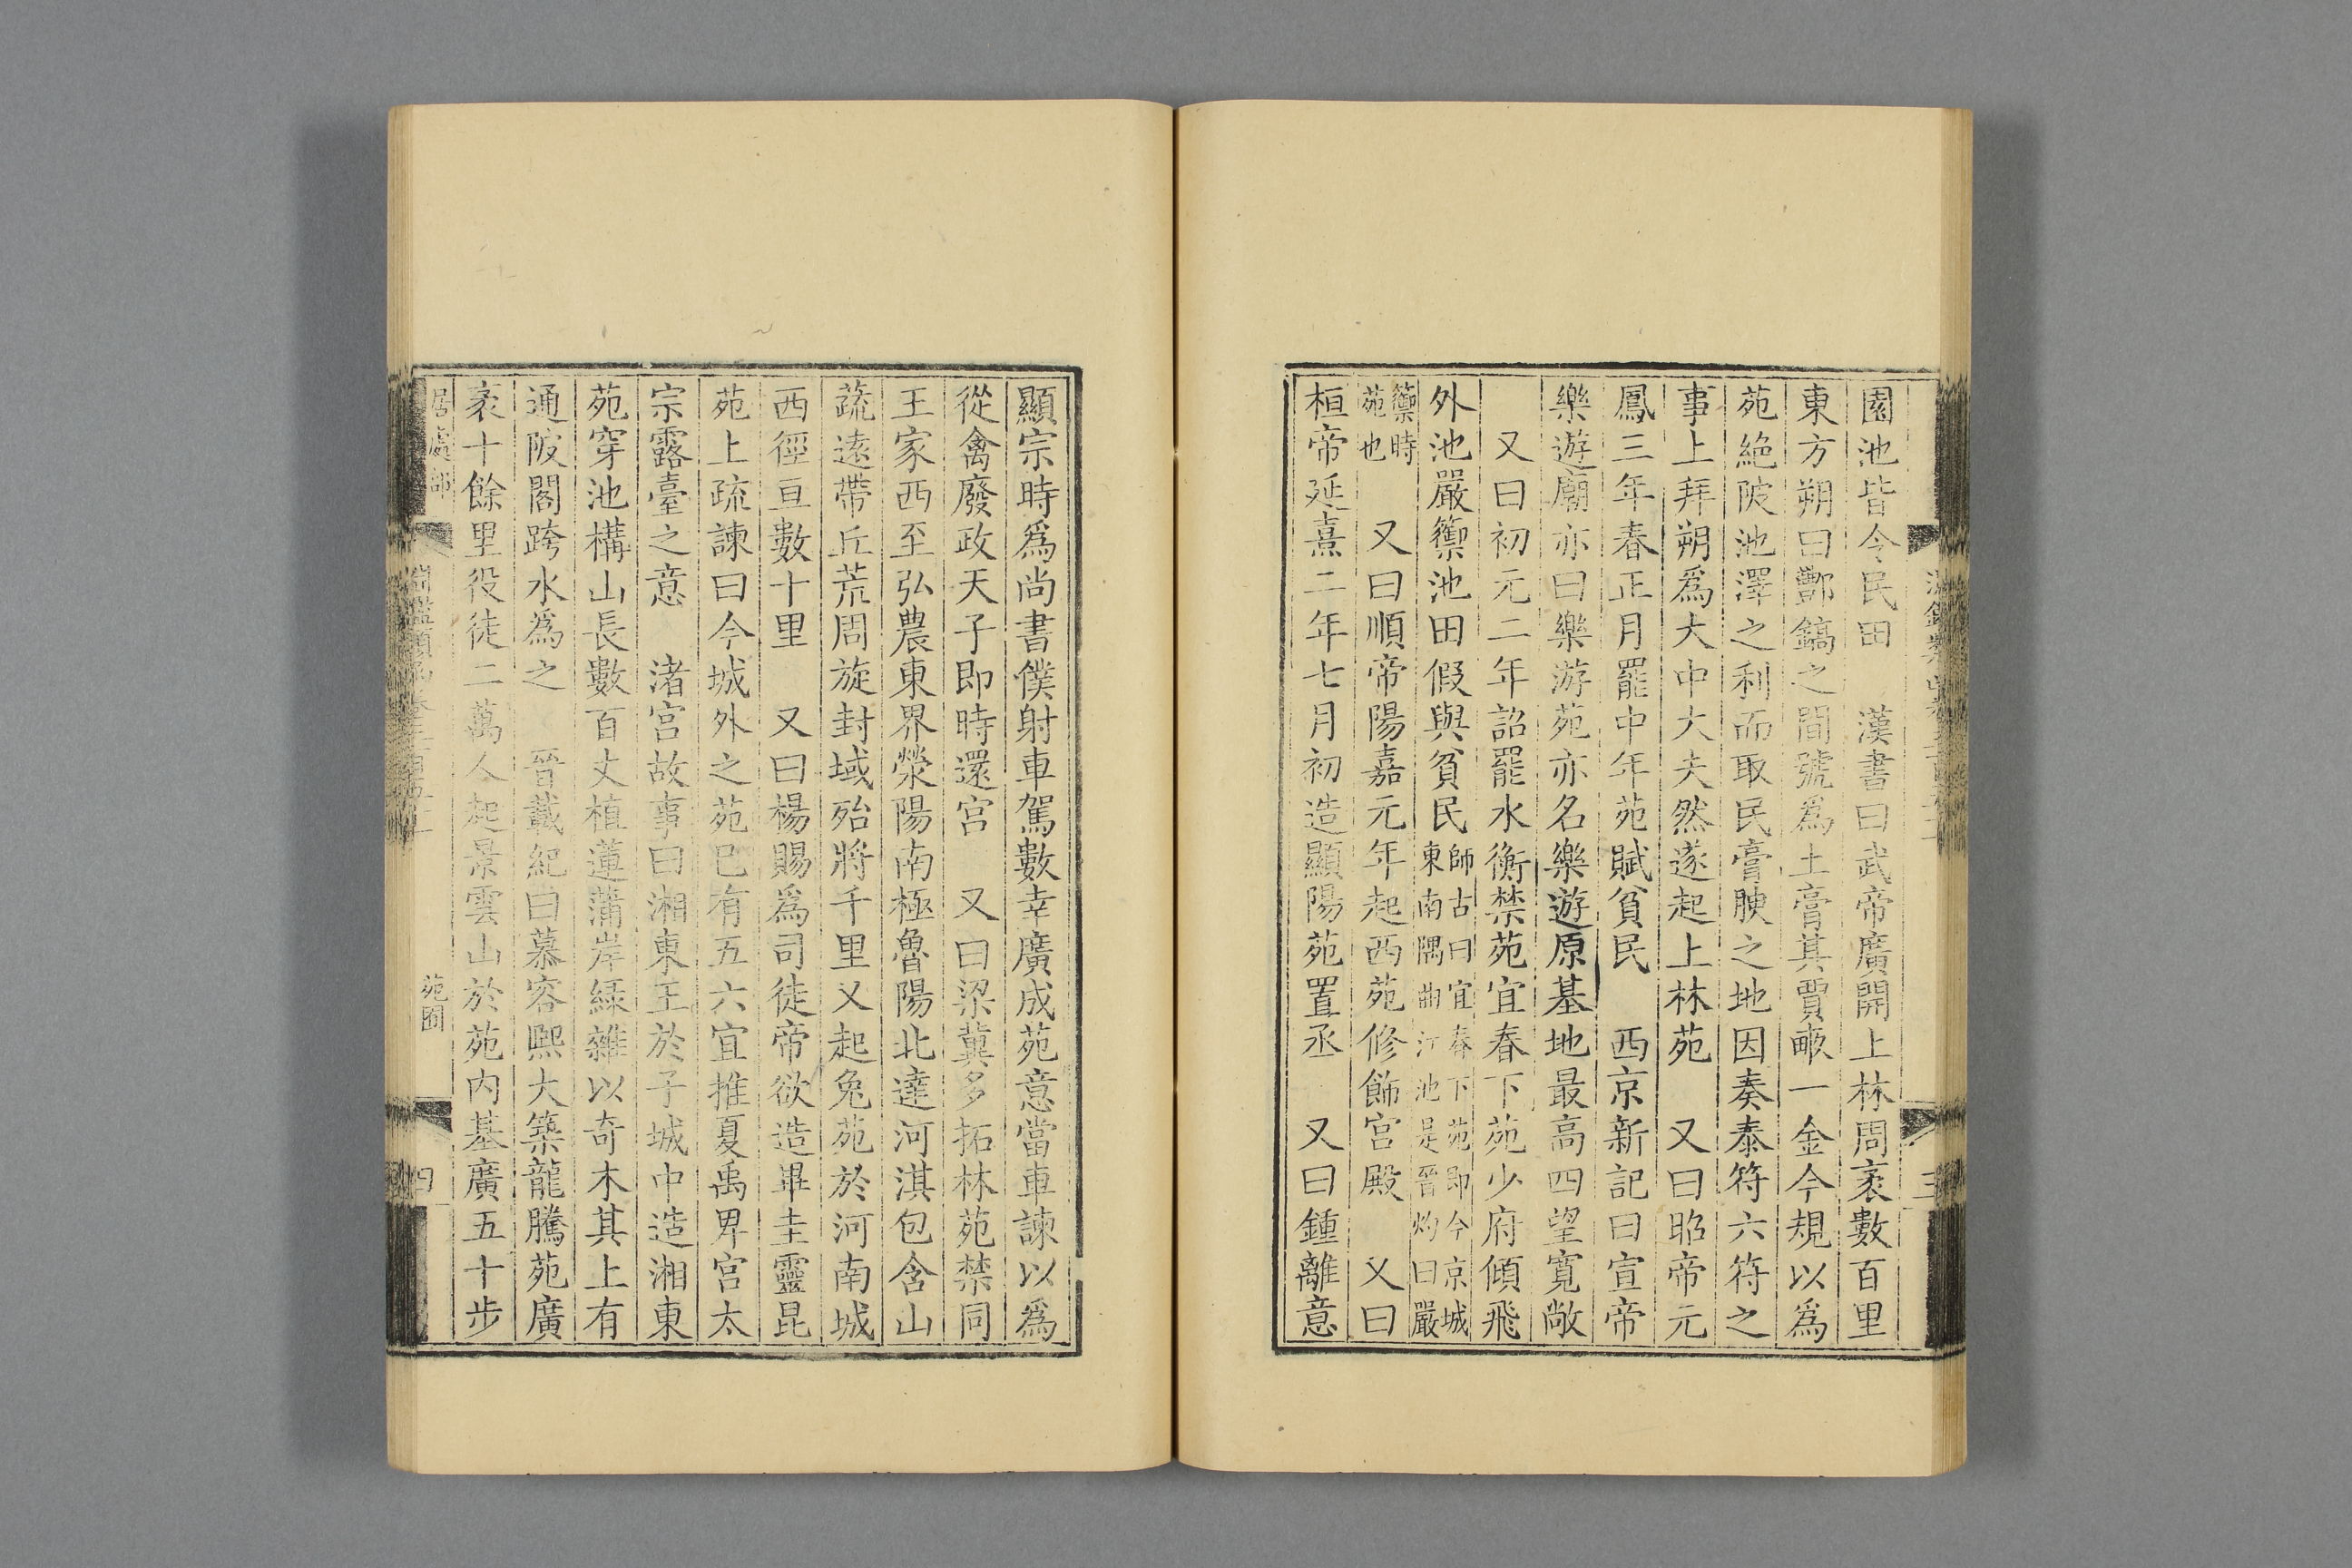 園池皆令民田　漢書曰武帝廣開上林周袤數百里
東方朔曰酆鎬之間號爲土膏其賈畝一金今規以爲
苑絶陂池澤之利而取民膏腴之地因奏泰符六符之
事上拜朔爲大中大夫然遂起上林苑　又曰昭帝元
鳳三年春正月罷中牟苑賦貧民　西京新記曰宣帝
樂遊廟亦曰樂游苑亦名樂遊原基地最高四望寬敞
又曰初元二年詔罷水衡禁苑宜春下苑少府佽飛
外池嚴籞池田假與貧民師古曰宜春下苑即今京城東南隅曲江池是晉灼曰嚴
籞時時苑也　又曰順帝陽嘉元年起西苑修飾宫殿　又曰
桓帝延熹二年七月初造顯陽苑置丞　又曰鍾離意
三
顯宗時爲尚書僕射車駕數幸廣成苑意當車諫以爲
從禽廢政天子即時還宫　又曰梁冀多拓林苑禁同
王家西至弘農東界滎陽南極魯陽北達河淇包含山
蔬遠帶丘荒周旋封域殆將千里又起兔苑於河南城
西徑亘數十里　又曰楊賜爲司徒帝欲造畢圭靈昆
苑上疏諫曰今城外之苑已有五六宜推夏禹卑宫太
宗露臺之意　渚宫故事曰湘東王於子城中造湘東
苑穿池構山長數百丈植蓮蒲岸緑雜以奇木其上有
通陂閣跨水爲之　晉載紀曰慕容熙大築龍騰苑廣
袤十餘里役徒二萬人起景雲山於苑内基廣五十步
居處部
苑囿
四